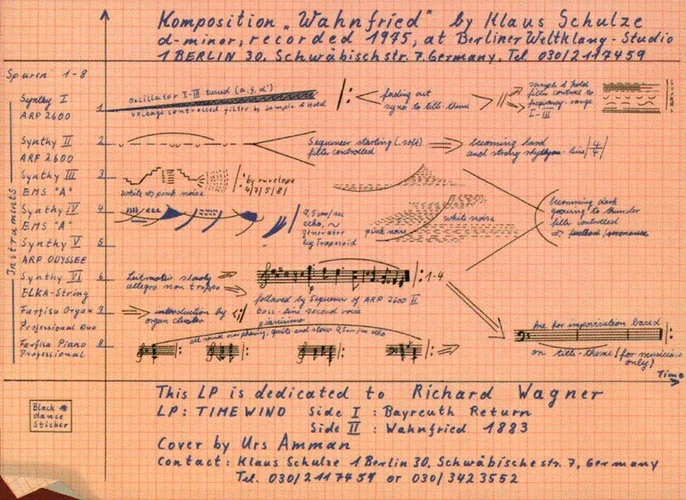 Komposition „Wahnfried" by Klaus Schulze
d-minor, recorded 1975, at Berliner Weltklang-Studio
1 BERLIN 30. Schwäbischstr. 7. Germany. Tel. 030/2117459
Spuren 1-8
Synthy I
ARP 2600
1
Oscillator I-III tuned (a, g, d')
Voltage controlled filter by Sample & Hold
fading out
sync to title-theme
sample & hold
filter control to
frequency-range
I-III
Synthy II
ARP 2600
2
Sequencer starting (soft)
filter controlled
becoming hard
and strong rhythm-line 4/4
Synthy III
EMS "A"
3
white & pink noise
by envelope
4/7/5/8/
Instruments
Synthy IV
EMS "A"
4
9,5 cm/sec
echo, ~
generator
by Trapezoid
white noise
pink noise
becoming dark
growing to thunder
filter controlled
feedback/resonance
Synthy V
ARP ODYSSEE
5
Synthy VI
ELKA-String
6
Leitmotiv slowly
allegro non troppo
1-4
followed by Sequencer of ARP 2600 II
Farfisa Organ
Professional Duo
7
introduction by
organ cluster
bass-line second voice
pianissimo
Are for improvisation based
on title-theme (for musicians
only)
Farfisa Piano
Professional
8
all voices phasing, quite and slow 9,5 cm/sec echo
Time
This LP is dedicated to Richard Wagner
LP: TIMEWIND Side I : Bayreuth Return
Side II : Wahnfried 1883
Black
dance
Sticker
Cover by Urs Amman
Contact: Klaus Schulze 1 Berlin 30. Schwäbischestr. 7, Germany
Tel. 030/2117459 or 030/3423552